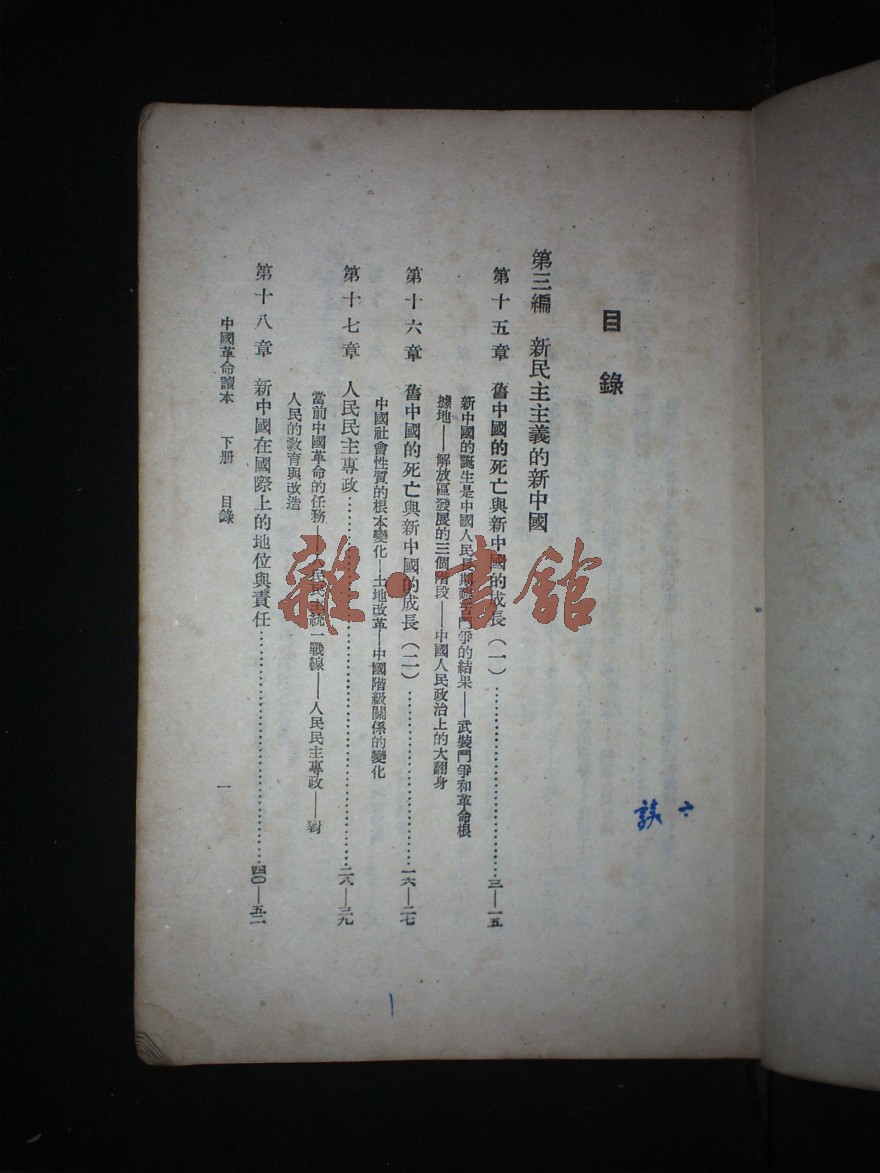 目錄
第三編　新民主主義的新中國
第十五章　舊中國的死亡與新中國的成長（一）…………三—一五
新中國的誕生是中國人民長期艱苦鬥爭的結果——武裝鬥爭和革命根
據地——解放區發展的三個階段——中國人民政治上的大翻身
第十六章　舊中國的死亡與新中國的成長（二）…………一六—二七
中國社會性質的根本變化—土地改革—中國階級關係的變化
第十七章　人民民主專政…………二八—三九
當前中國革命的任務——人民民主統一戰線——人民民主專政——對
人民的敎育與改造
第十八章　新中國在國際上的地位與責任…………四〇—五二
中國革命讀本　下册　目錄　一
雜·書館